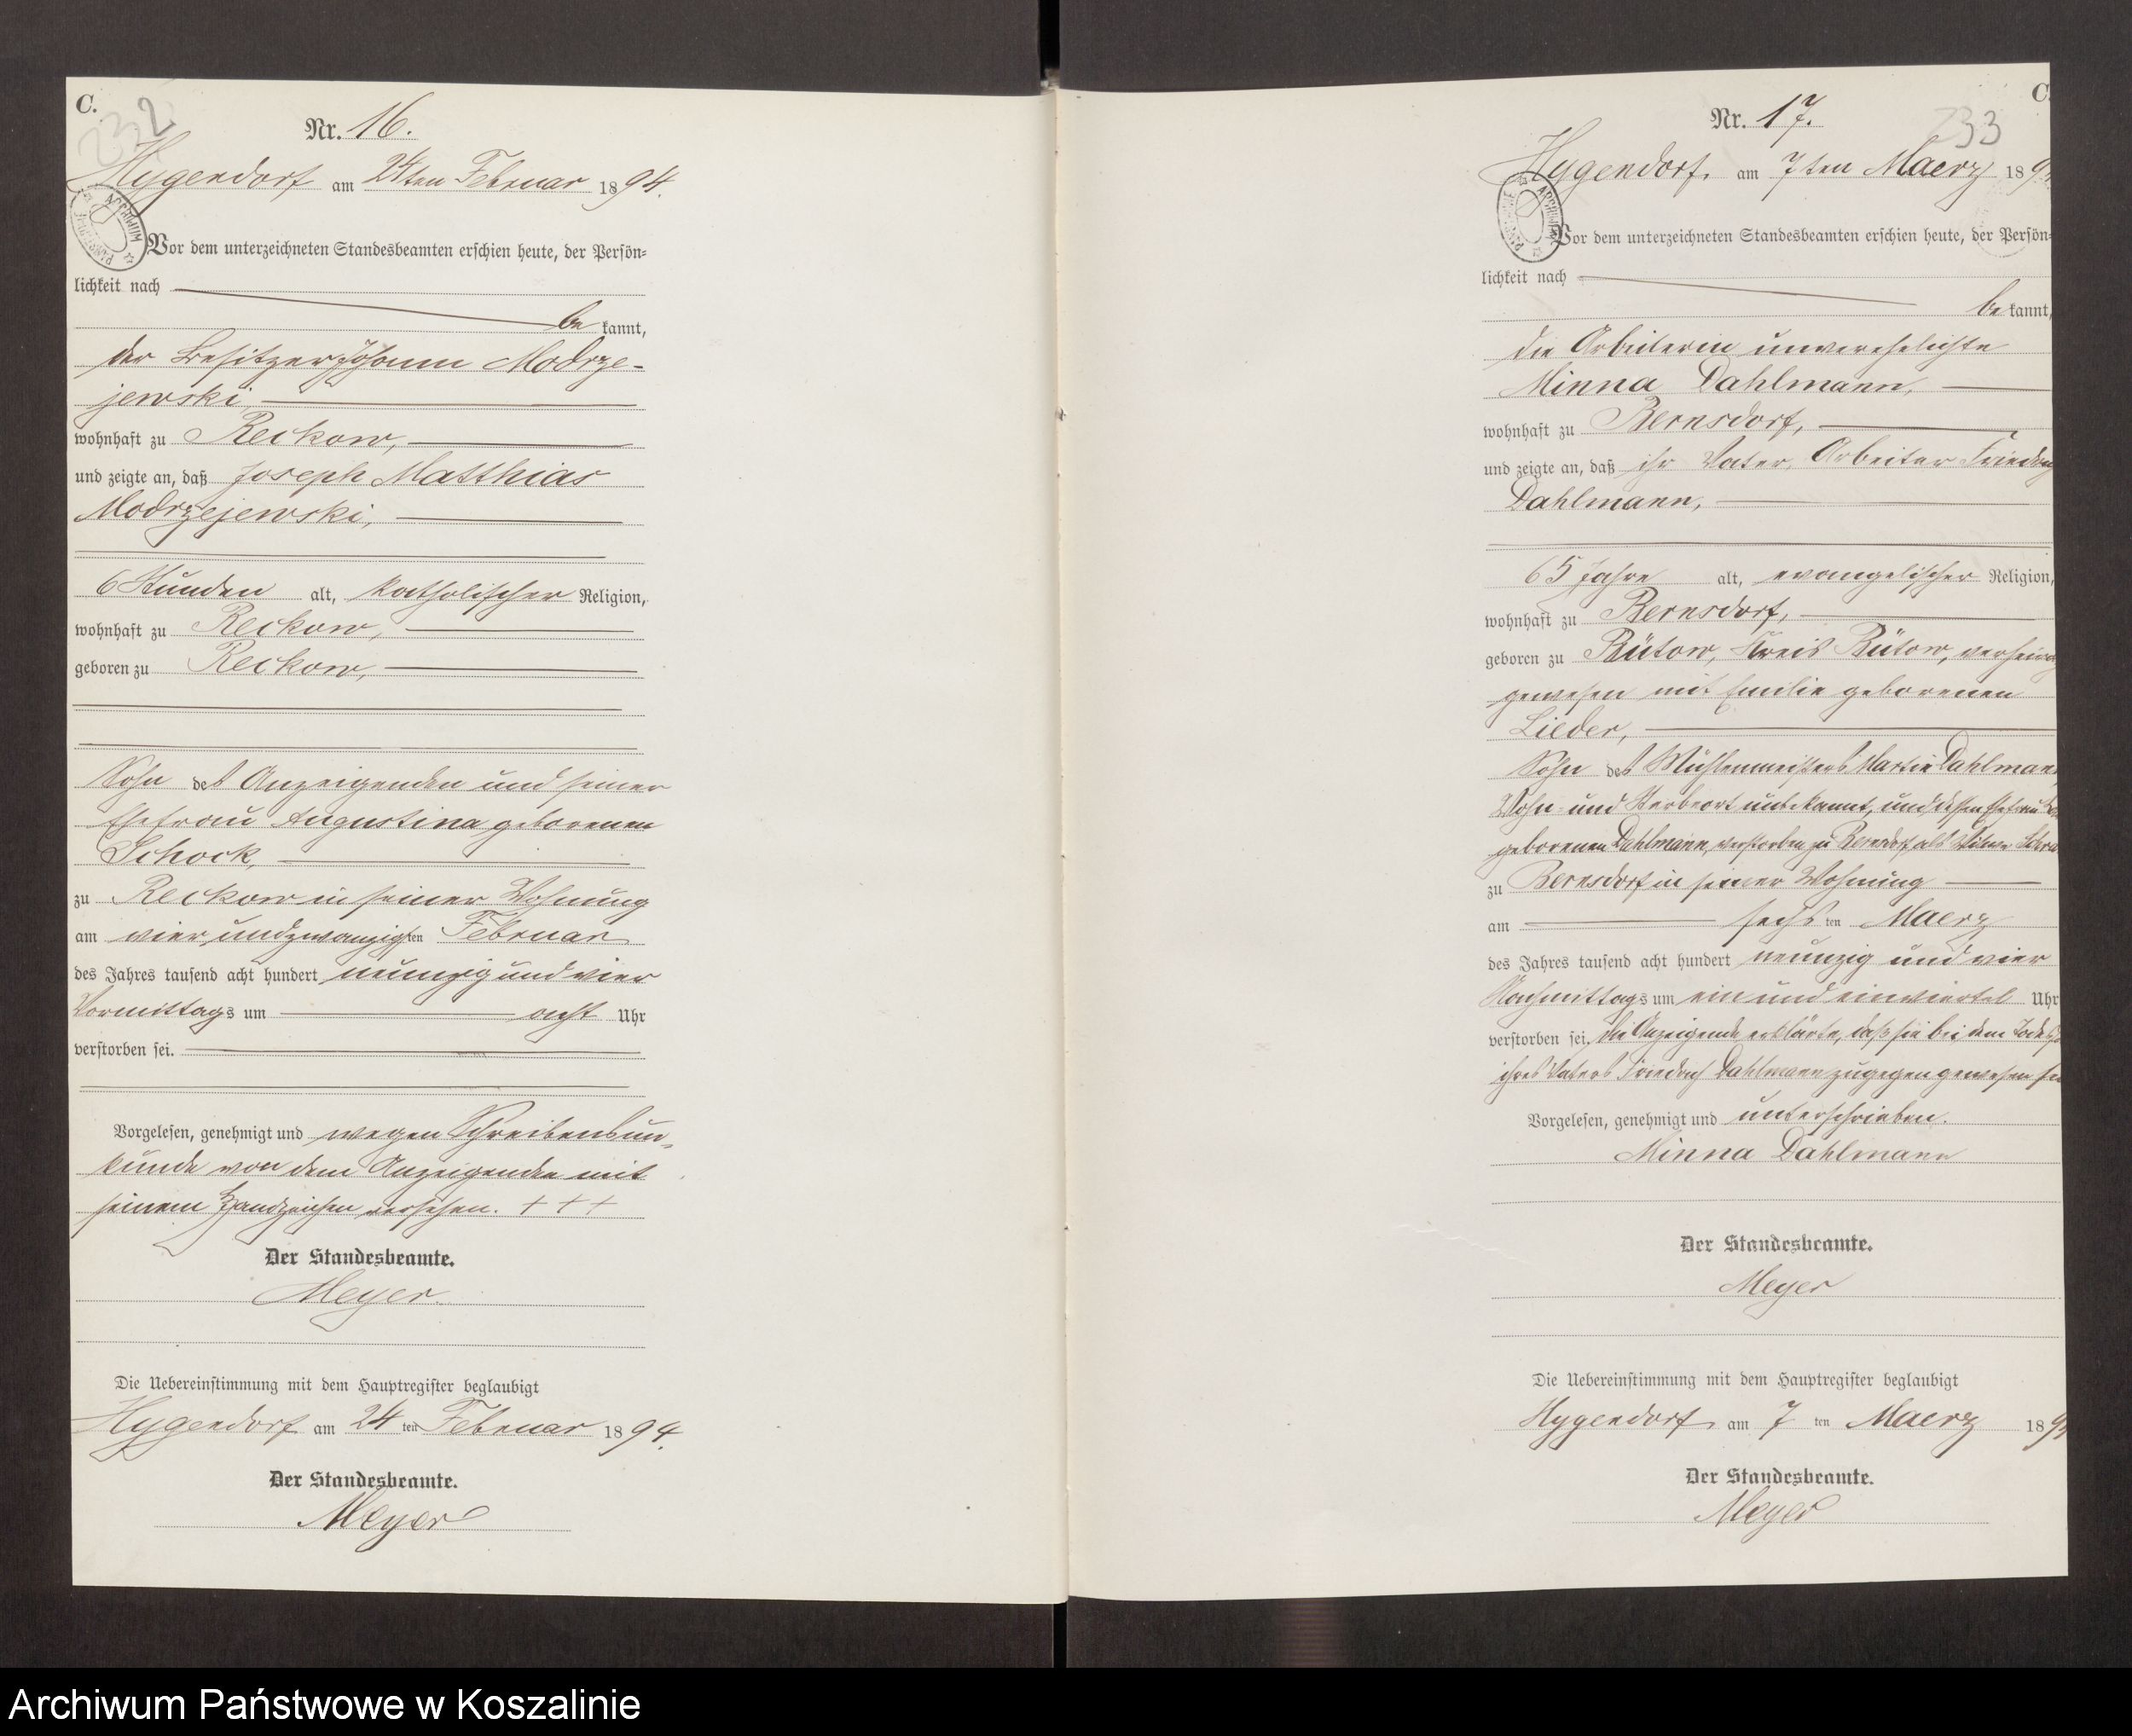 C.
232
Nr. 16.
Hygendorf am 24ten Februar 1894.
Vor dem unterzeichneten Standesbeamten erschien heute, der Persön-
lichkeit nach
be kannt,
der Besitzer Johann Modrze-
jewski,
wohnhaft zu Reckow,
und zeigte an, daß Joseph Matthias
Modrzejewski,
6 Stunden alt, katholischer Religion,
wohnhaft zu Reckow,
geboren zu Reckow,
Sohn des Anzeigenden und seiner
Ehefrau Augustina geborenen
Schock,
zu Reckow in seiner Wohnung
am vier und zwanzigsten Februar
des Jahres tausend acht hundert neunzig und vier
Vormittags um acht Uhr
verstorben sei.
Vorgelesen, genehmigt und wegen Schreibensun-
kunde von dem Anzeigenden mit
seinem Handzeichen versehen. + + +
Der Standesbeamte.
Meyer.
Die Uebereinstimmung mit dem Hauptregister beglaubigt
Hygendorf am 24 ten Februar 1894.
Der Standesbeamte.
Meyer
C
233
Nr. 17.
Hygendorf, am 7ten Maerz 189
Vor dem unterzeichneten Standesbeamten erschien heute, der Persön-
lichkeit nach
be kannt,
die Arbeiterin unverehelichte
Minna Dahlmann,
wohnhaft zu Bernsdorf,
und zeigte an, daß ihr Vater, Arbeiter Friedrich
Dahlmann,
65 Jahre alt, evangelischer Religion,
wohnhaft zu Bernsdorf,
geboren zu Bütow, Kreis Bütow, verheira
gewesen mit Emilie geborenen
Lieder,
Sohn des Mühlenmeisters Martin Dahlmann
Wohn- und Sterbeort unbekannt, und dessen Ehefrau
geborenen Dahlmann, verstorben zu Bernsdorf als Witwe
zu Bernsdorf in seiner Wohnung
am sechs ten Maerz
des Jahres tausend acht hundert neunzig und vier
Nachmittags um ein und einviertel Uhr
verstorben sei. Die Anzeigende erklärte, daß sie bei dem Tode
ihres Vaters Friedrich Dahlmann zugegen gewesen sei
Vorgelesen, genehmigt und unterschrieben.
Minna Dahlmann
Der Standesbeamte.
Meyer
Die Uebereinstimmung mit dem Hauptregister beglaubigt
Hygendorf, am 7 ten Maerz 189
Der Standesbeamte.
Meyer
Archiwum Państwowe w Koszalinie